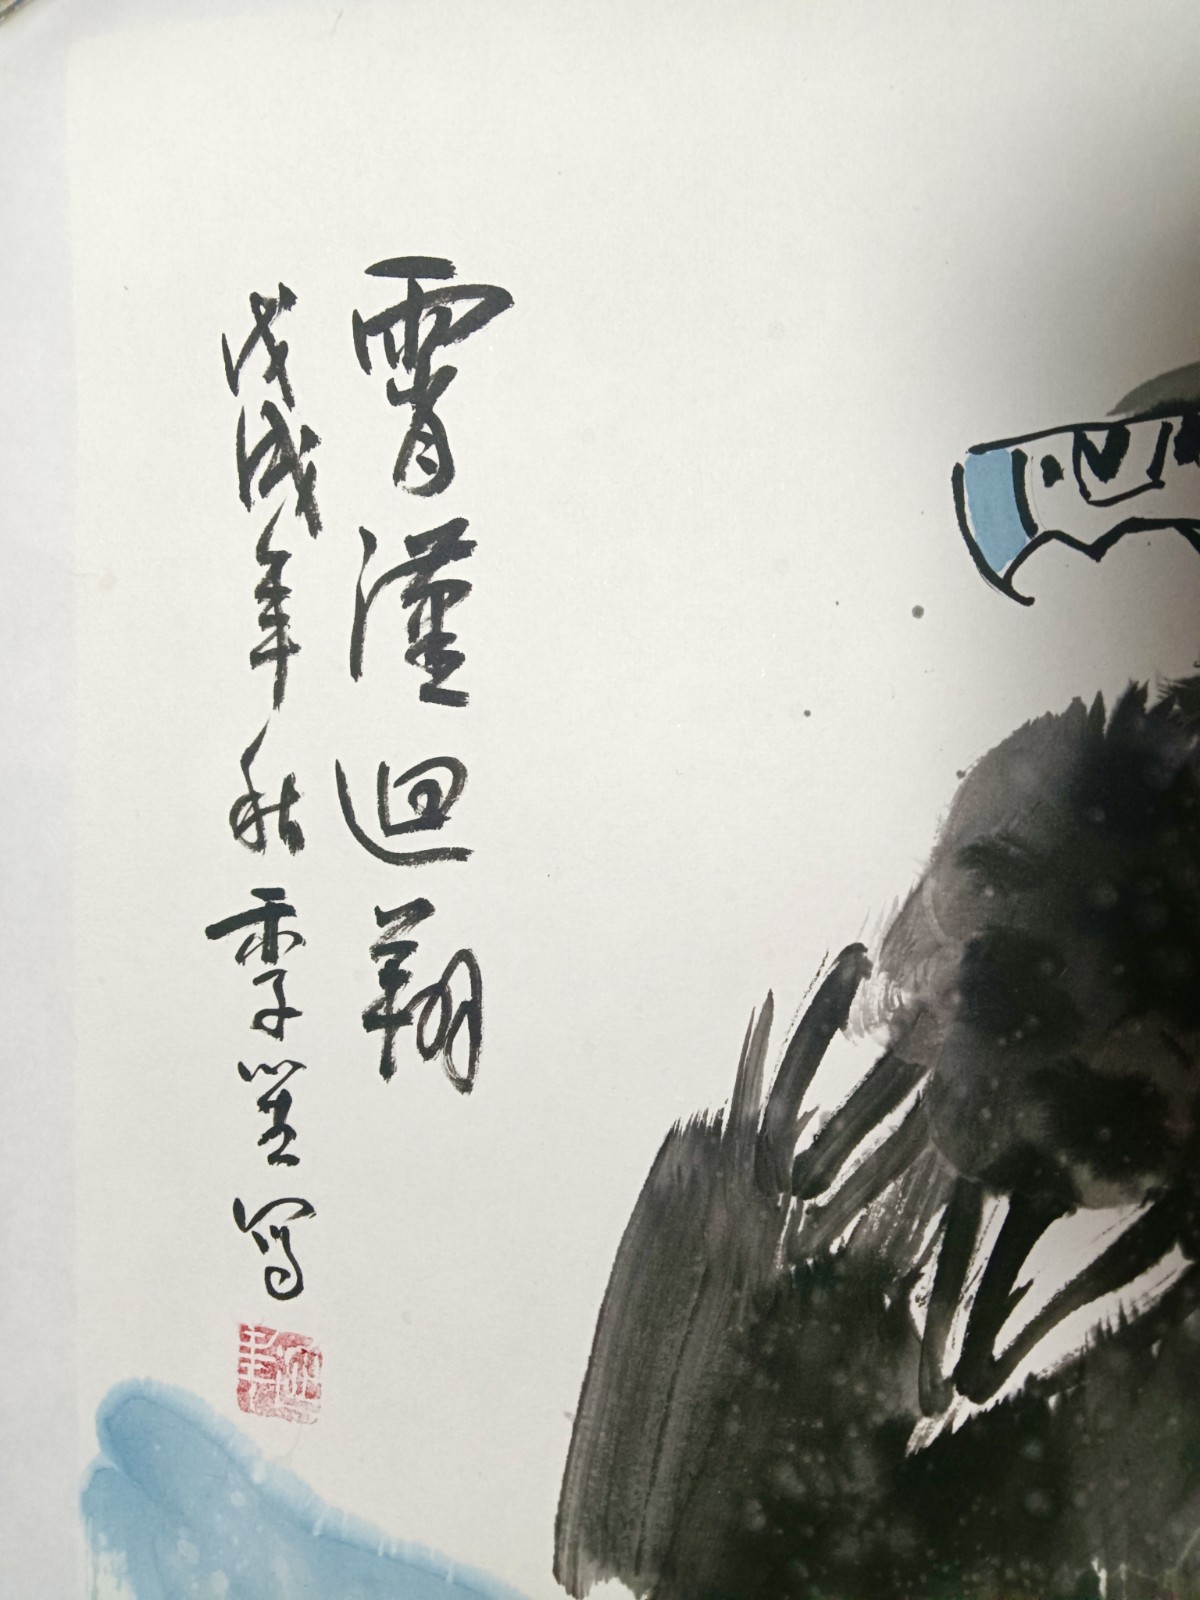 霄漢迴翔
戊戌年秋季寫